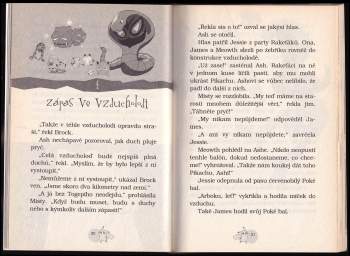 Zápas ve vzducholodi
„Takže v téhle vzducholodi opravdu stra-
ší,“ řekl Brock.
Ash nechápavě pozoroval, jak duch pluje
pryč.
„Celá vzducholoď bude nejspíš plná
duchů,“ řekl. „Myslím, že by bylo lepší z ní
vystoupit.“
„Nemůžeme z ní vystoupit,“ ukázal Brock
ven. „Jsme skoro dva kilometry nad zemí.“
„A já bez Togepiho neodejdu,“ prohlásila
Misty. „Když budu muset, budu s duchy
nebo s kýmkoliv dalším zápasit!“
„Řekla sis o to!“ ozval se jakýsi hlas.
Ash se otočil.
Hlas patřil Jessie z party Raketáků. Ona,
James a Meowth slezli po žebříku rovněž do
konstrukce vzducholodě.
„Už zase!“ zasténal Ash. Raketáci na ně
v jednom kuse líčili pasti, aby mu mohli
ukrást Pikachu. Ashovi se vůbec nelíbilo, že
se objevili zrovna teď.
Misty se rozzlobila. „My teď máme na sta-
rosti mnohem důležitější věci,“ řekla jim.
„Táhněte pryč!“
„My nikam nepůjdeme,“ odpověděl Ja-
mes.
„A ani vy nikam nepůjdete,“ zavrčela
Jessie.
Meowth pohlédl na Ashe. „Nikdo neopustí
tenhle balón, dokud nedostaneme, co chce-
me!“ vyhrožoval. „Takže nám koukej dát toho
Pikachu, Ashi!“
Jessie odepnula od pasu červenobílý Poké
bal.
„Arboku, leť!“ vykřikla a hodila míček do
vzduchu.
Také James hodil svůj Poké bal.